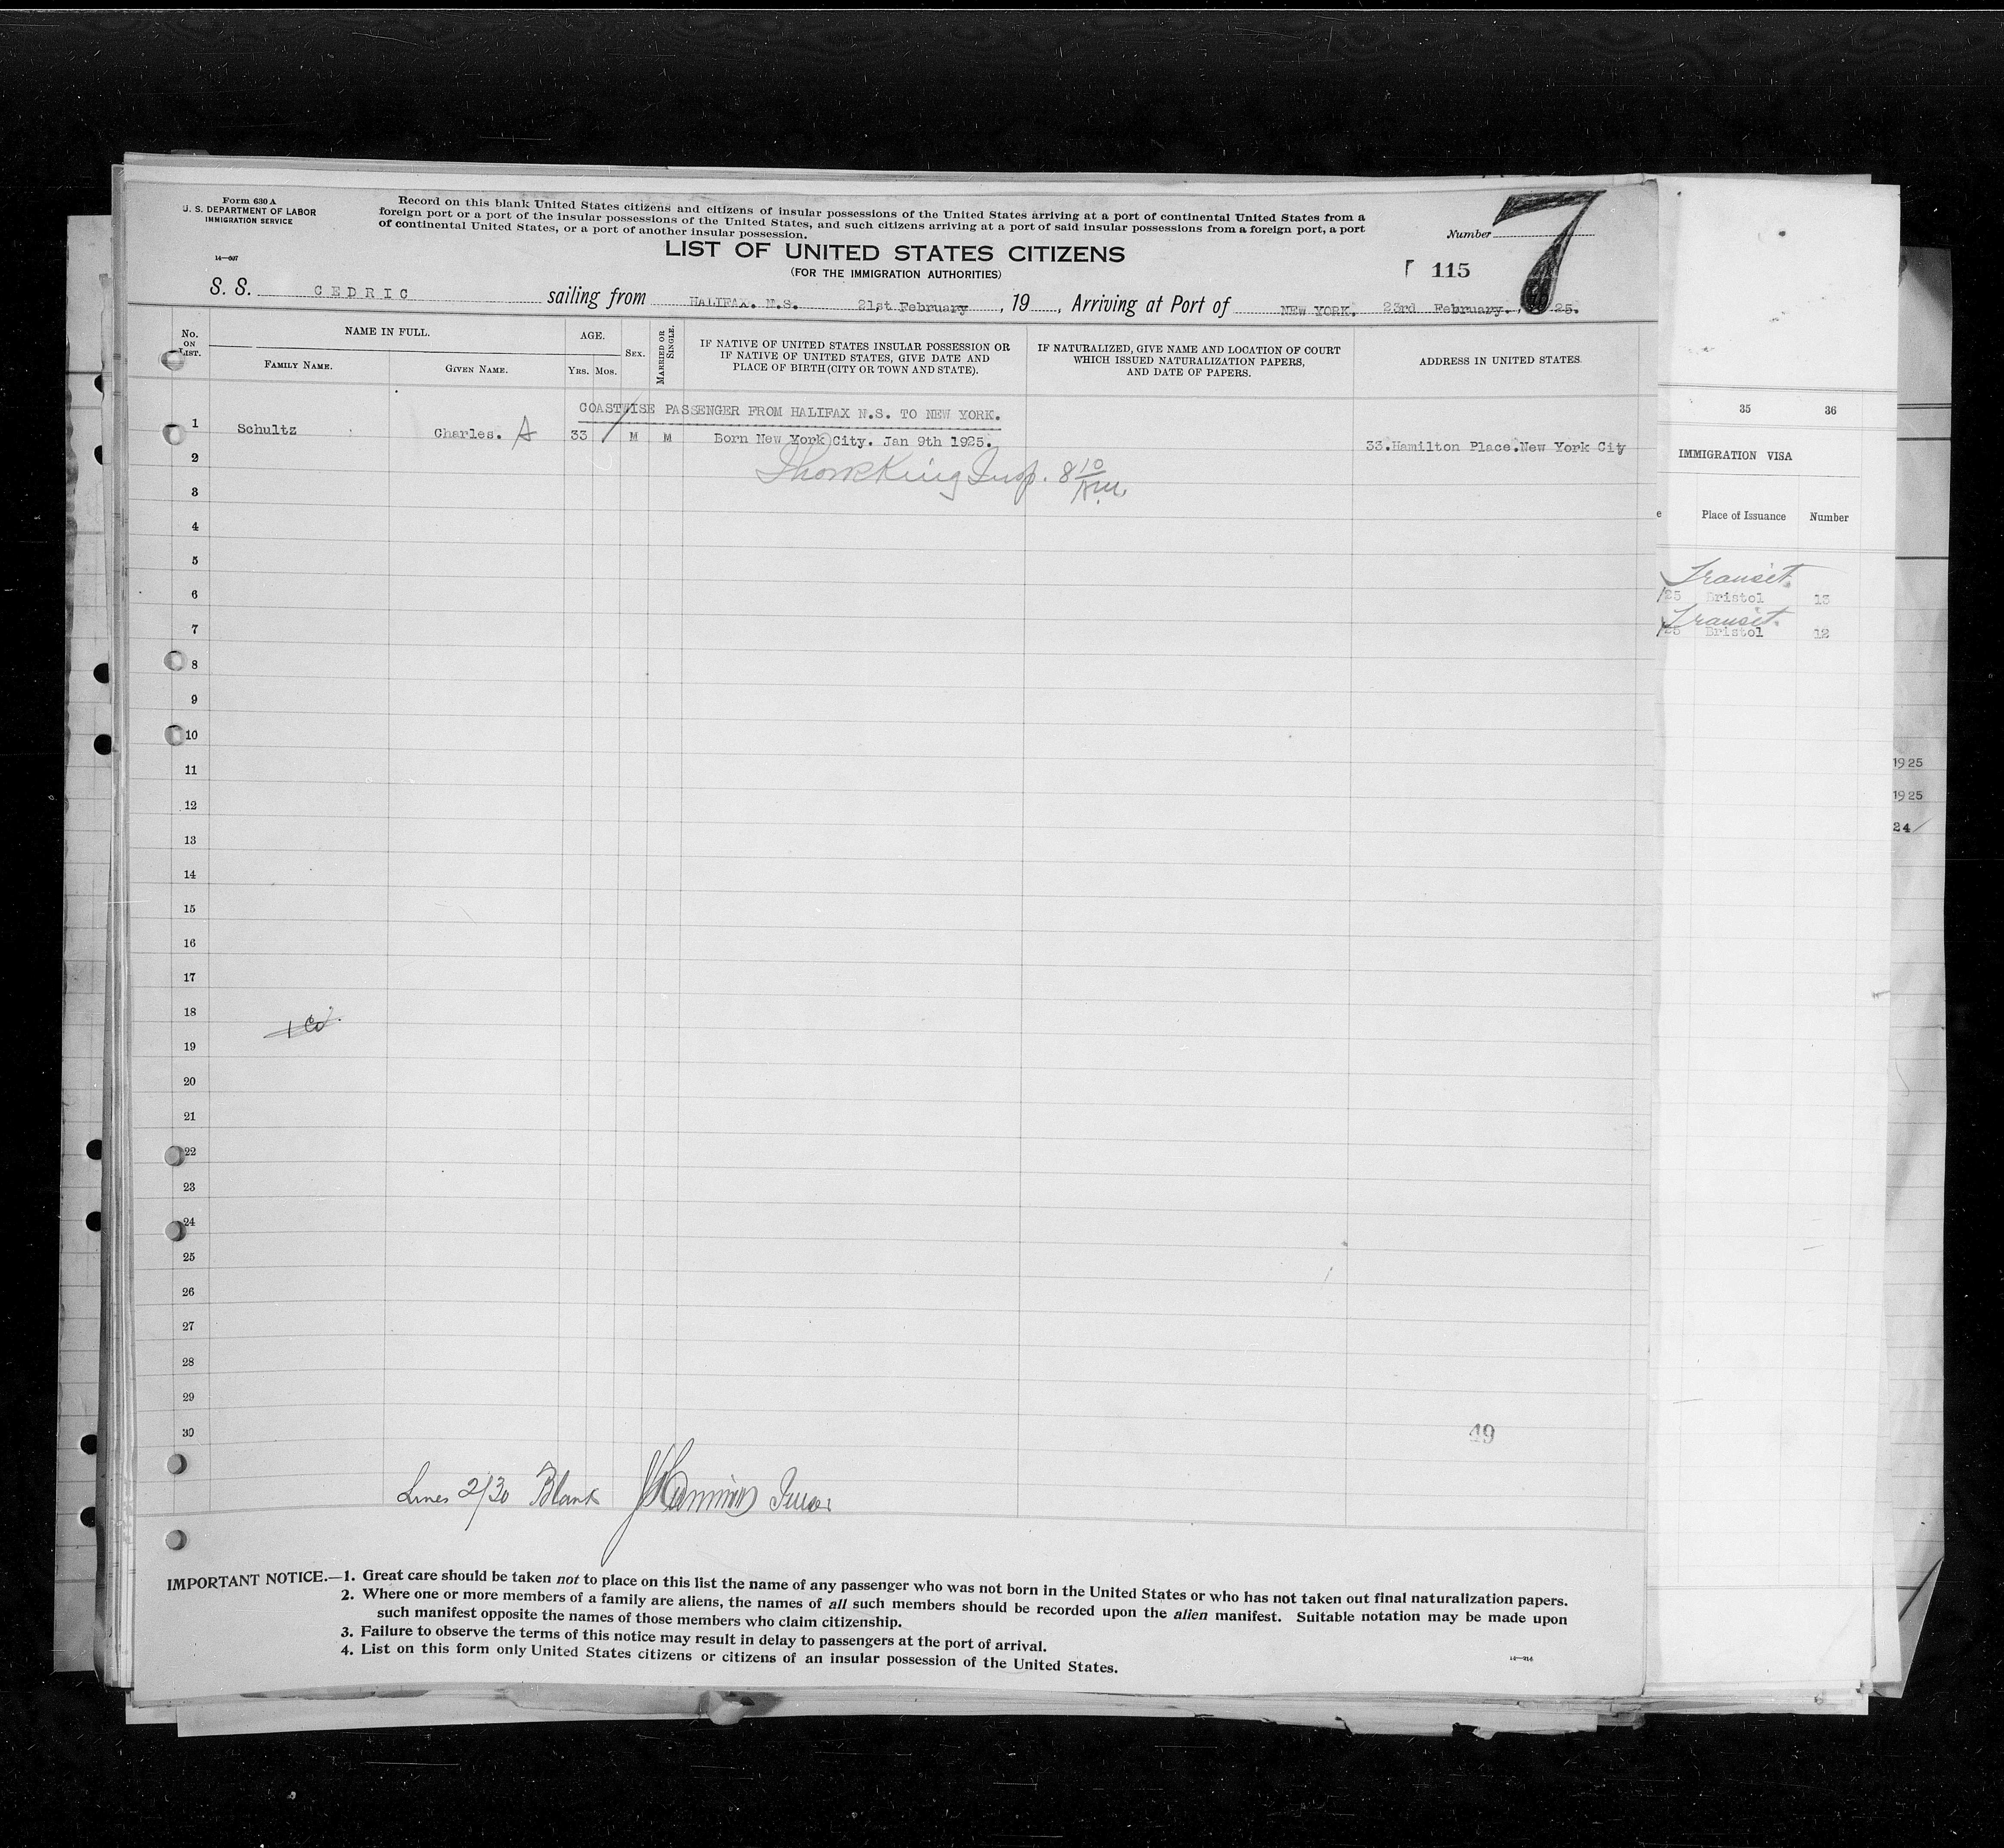 Form 630 A
U. S. DEPARTMENT OF LABOR
IMMIGRATION SERVICE
Record on this blank United States citizens and citizens of insular possessions of the United States arriving at a port of continental United States from a
foreign port or a port of the insular possessions of the United States, and such citizens arriving at a port of said insular possessions from a foreign port, a port
of continental United States, or a port of another insular possession.
Number 7
LIST OF UNITED STATES CITIZENS
(FOR THE IMMIGRATION AUTHORITIES)
115
S. S. CEDRIC sailing from HALIFAX. N.S. 21st February , 19 , Arriving at Port of NEW YORK. 23rd February. , 25.
No. ON LIST.
NAME IN FULL.
FAMILY NAME.
GIVEN NAME.
AGE.
YRS. MOS.
SEX.
MARRIED OR SINGLE.
IF NATIVE OF UNITED STATES INSULAR POSSESSION OR
IF NATIVE OF UNITED STATES, GIVE DATE AND
PLACE OF BIRTH (CITY OR TOWN AND STATE).
IF NATURALIZED, GIVE NAME AND LOCATION OF COURT
WHICH ISSUED NATURALIZATION PAPERS,
AND DATE OF PAPERS.
ADDRESS IN UNITED STATES.
COASTWISE PASSENGER FROM HALIFAX N.S. TO NEW YORK.
1 Schultz Charles. A 33 M M Born New York City. Jan 9th 1925. 33.Hamilton Place.New York City
2
King Insp. 8 10 AM.
3
4
5
6
7
8
9
10
11
12
13
14
15
16
17
18
19
20
21
22
23
24
25
26
27
28
29
30
49
Lines 2/30 Blank
IMPORTANT NOTICE.—1. Great care should be taken not to place on this list the name of any passenger who was not born in the United States or who has not taken out final naturalization papers.
2. Where one or more members of a family are aliens, the names of all such members should be recorded upon the alien manifest. Suitable notation may be made upon
such manifest opposite the names of those members who claim citizenship.
3. Failure to observe the terms of this notice may result in delay to passengers at the port of arrival.
4. List on this form only United States citizens or citizens of an insular possession of the United States.
35 36
IMMIGRATION VISA
Place of Issuance Number
Transit
/25 Bristol 13
Transit
/25 Bristol 12
1925
1925
24